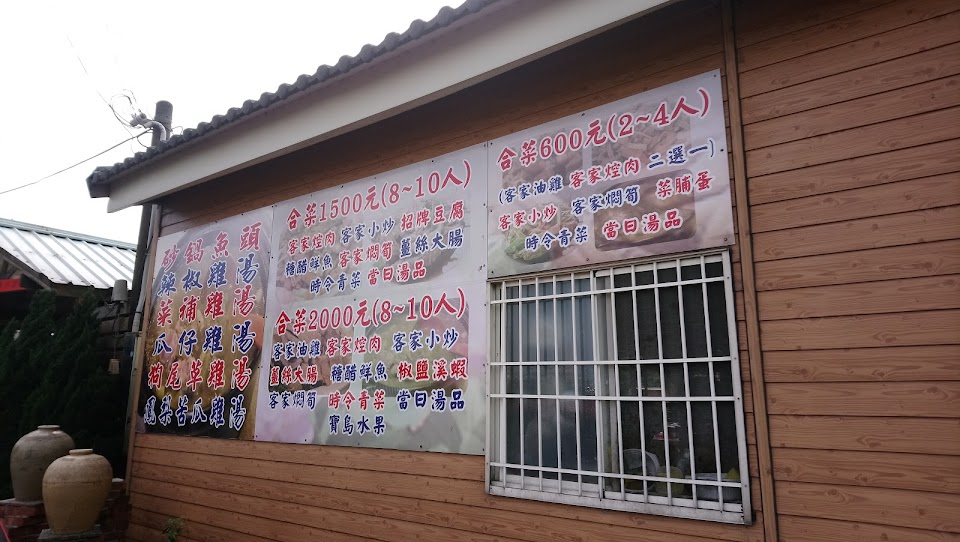 砂鍋魚頭
辣椒雞湯
菜補雞湯
瓜仔雞湯
狗尾草雞湯
鳳梨苦瓜雞湯
合菜1500元(8~10人)
客家焢肉 客家小炒 招牌豆腐
糖醋鮮魚 客家燜筍 薑絲大腸
時令青菜 當日湯品
合菜2000元(8~10人)
客家油雞 客家焢肉 客家小炒
薑絲大腸 糖醋鮮魚 椒鹽溪蝦
客家燜筍 時令青菜 當日湯品
寶島水果
合菜600元(2~4人)
(客家油雞 客家焢肉 二選一)
客家小炒 客家燜筍 菜脯蛋
時令青菜 當日湯品